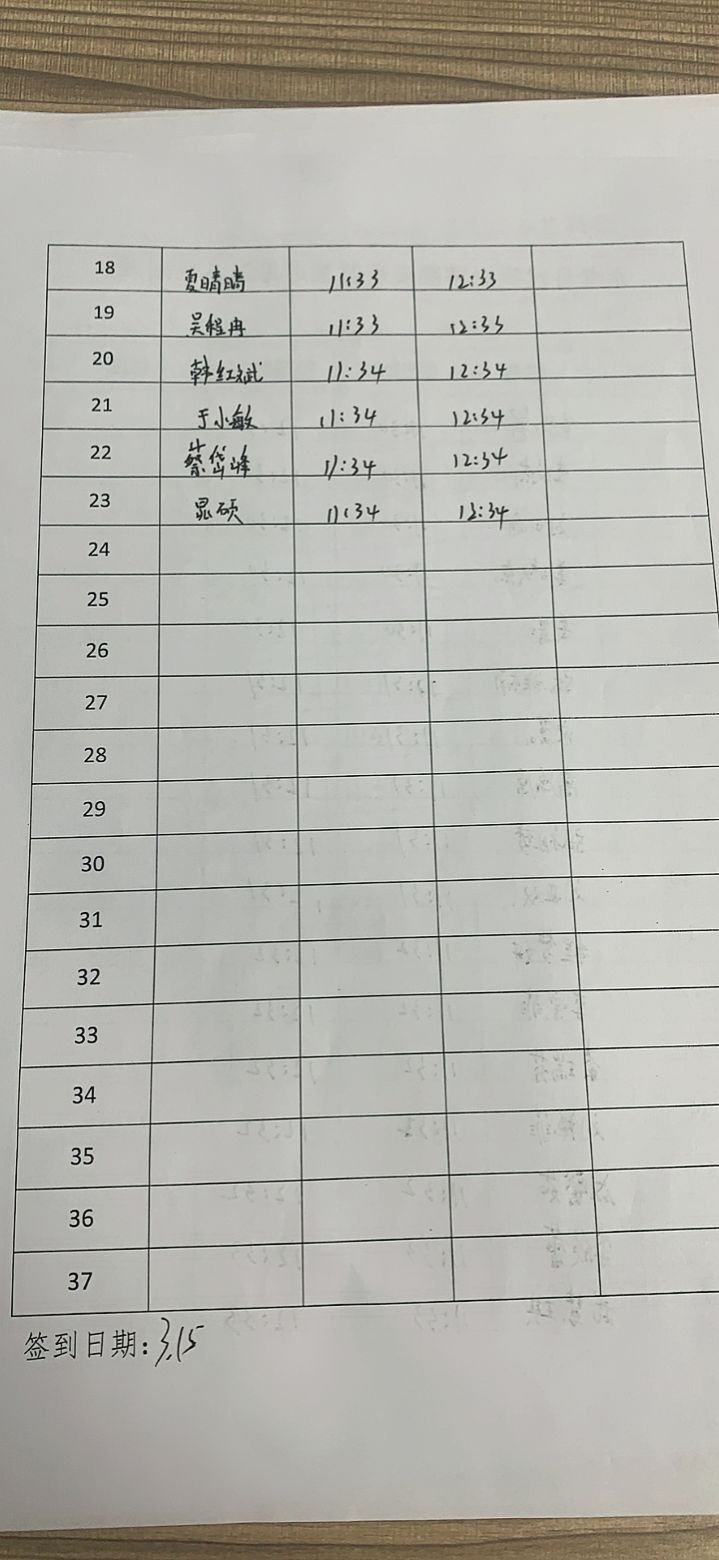 18 夏晴晴 11:33 12:33
19 吴程冉 11:33 12:33
20 韩红斌 11:34 12:34
21 于小敏 11:34 12:34
22 蔡岱峰 11:34 12:34
23 晁硕 11:34 12:34
24
25
26
27
28
29
30
31
32
33
34
35
36
37
签到日期:3.15